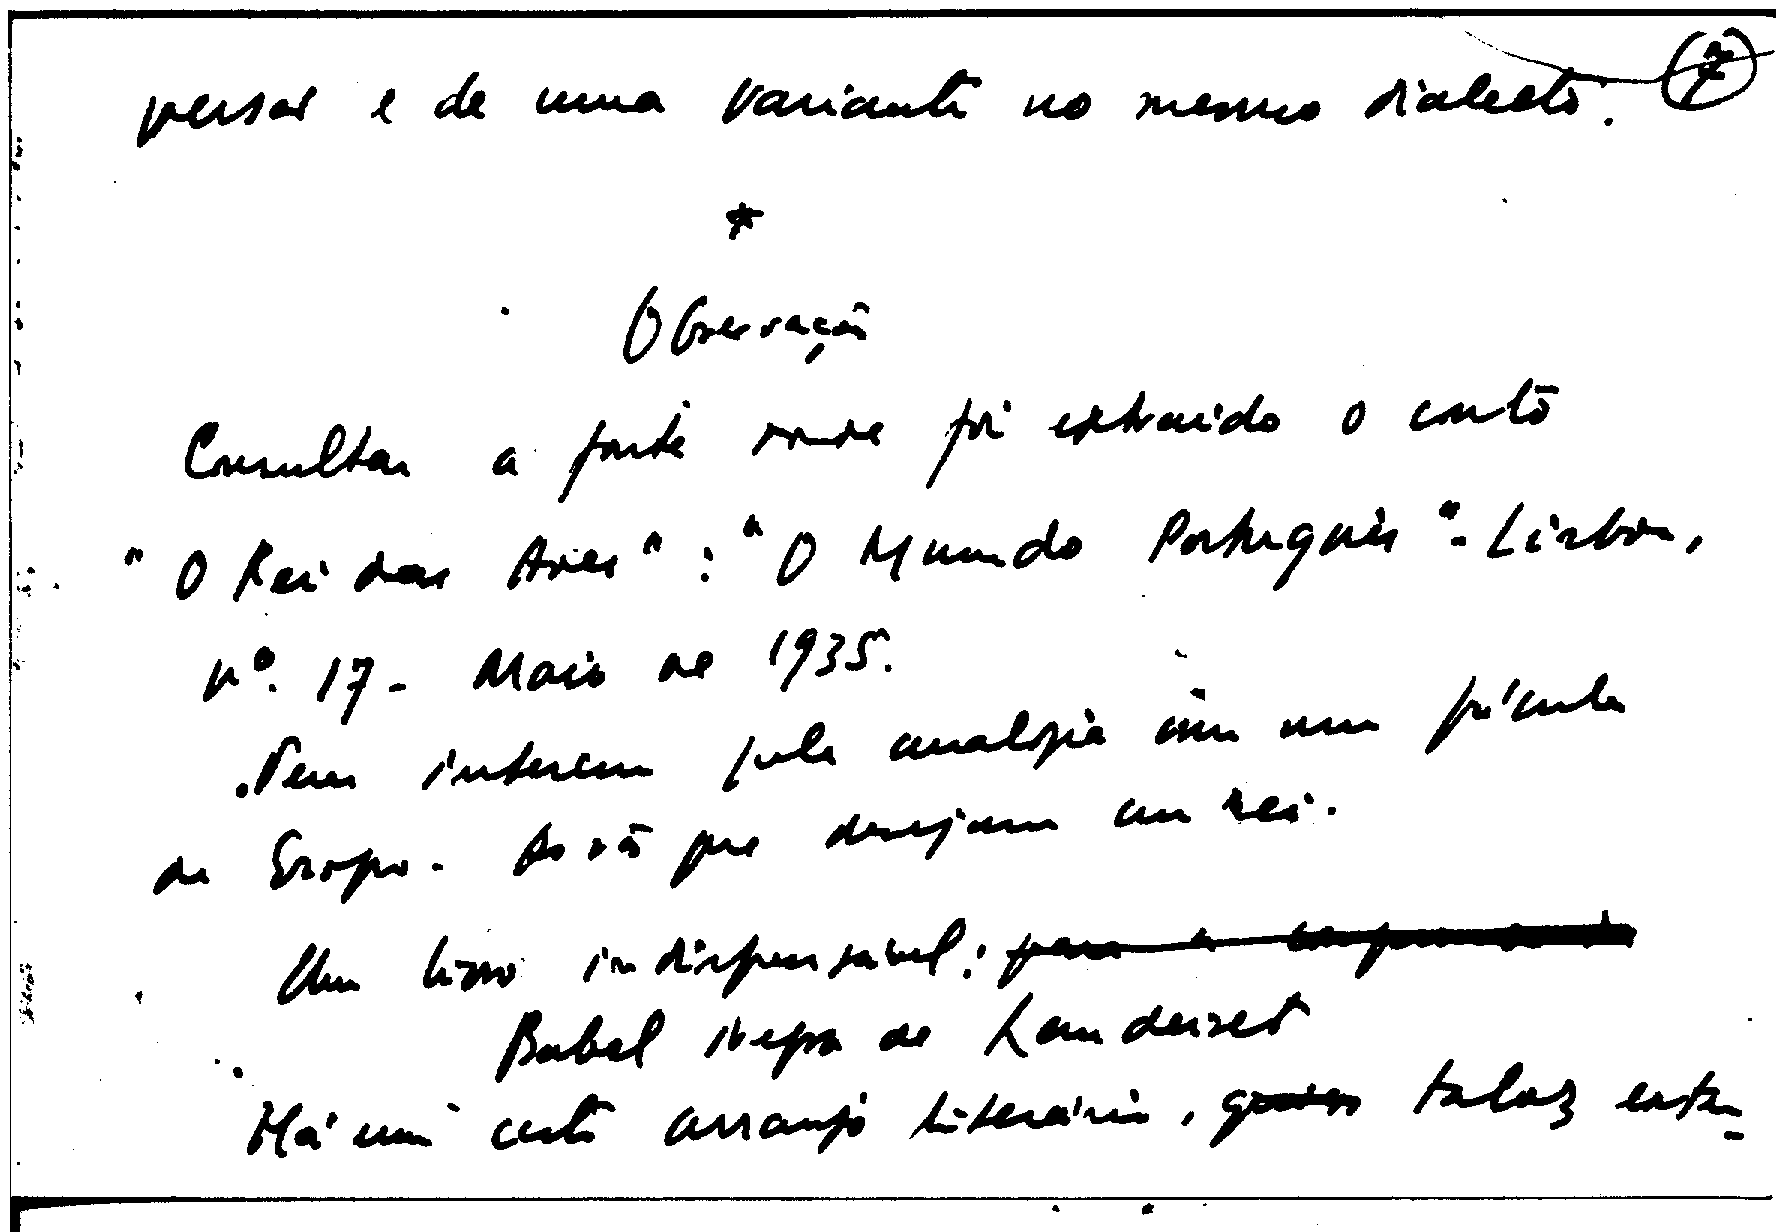 7
versos e de uma variante no mesmo dialecto.
*
Observação
Consultar a fonte onde foi extraido o conto
"O Rei das Aves": "O Mundo Português" - Lisboa,
nº. 17 - Maio de 1935.
Tem interesse pela analogia com uma fábula
de Esopo. As rãs que desejam um rei.
Um livro indispensável: para a compreensão da
Babel Negra de Landerset
Há um certo arranjo literário, quiser talvez estra-